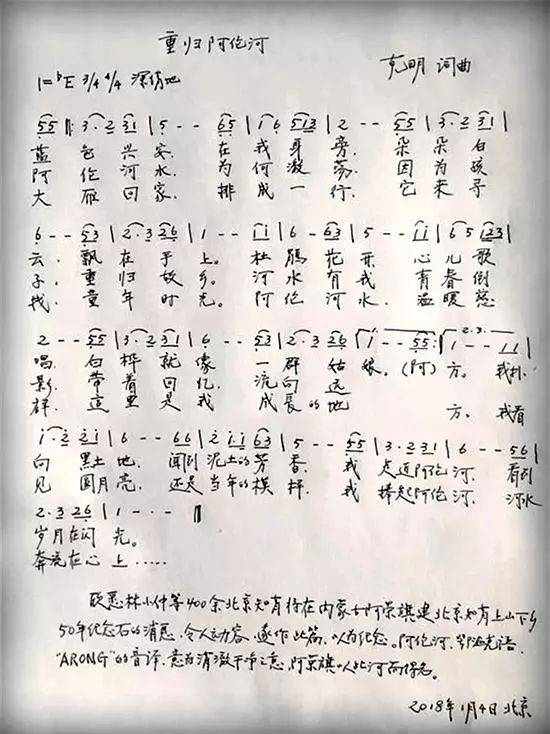 重归阿伦河
克明 词曲
1=♭E 3/4 4/4 深情地
5 5 ‖: 3 · 2 3 1 | 5 - - 6 5 | 1 6 5 1 3 | 2 - - 5 5 | 3 · 2 3 1 |
蓝色兴安 在我身旁. 朵朵白
阿伦河水. 为何激荡. 因为孩
大雁回家. 排成一行. 它来寻
6 - - 5 3 | 2 · 3 2 6 | 1 - - i i | 6 - 6 3 | 5 - i i | 6 5 2 3 |
云, 飘在手上. 杜鹃花开 心儿歌
子, 重归故乡. 河水有我 青春倒
找, 童年时光. 阿伦河水. 温暖慈
2 - - 5 5 | 3 · 2 3 1 | 6 - - 5 3 | 2 · 3 2 6 | 1 - - 5 5 :‖ 1 - - i i |
唱. 白桦就像 一群姑娘. (阿) 方. 我扑
影. 带着回忆. 流向远
群. 这里是我 成長的地 方. 我看
i · 2 2 i | 6 - - 6 6 | 2 i i 6 3 | 5 - - 5 5 | 3 · 2 3 1 | 6 - - 5 6 |
向黑土地. 闻到泥土的芳香. 我走近阿伦河. 看到
见圆月亮. 还是当年的模样. 我捧起阿伦河. 河水
2 · 3 2 6 | 1 - · - ‖
岁月在闪光.
奔流在心上……
欣悉林小仲等400余北京知青将在内蒙古阿荣旗建北京知青上山下乡
50年纪念石的消息, 令人动容. 遂作此篇, 以为纪念. 阿伦河, 鄂温克语,
"ARONG"的音译, 意为清澈干净之意, 阿荣旗以此河而得名。
2018年1月4日北京